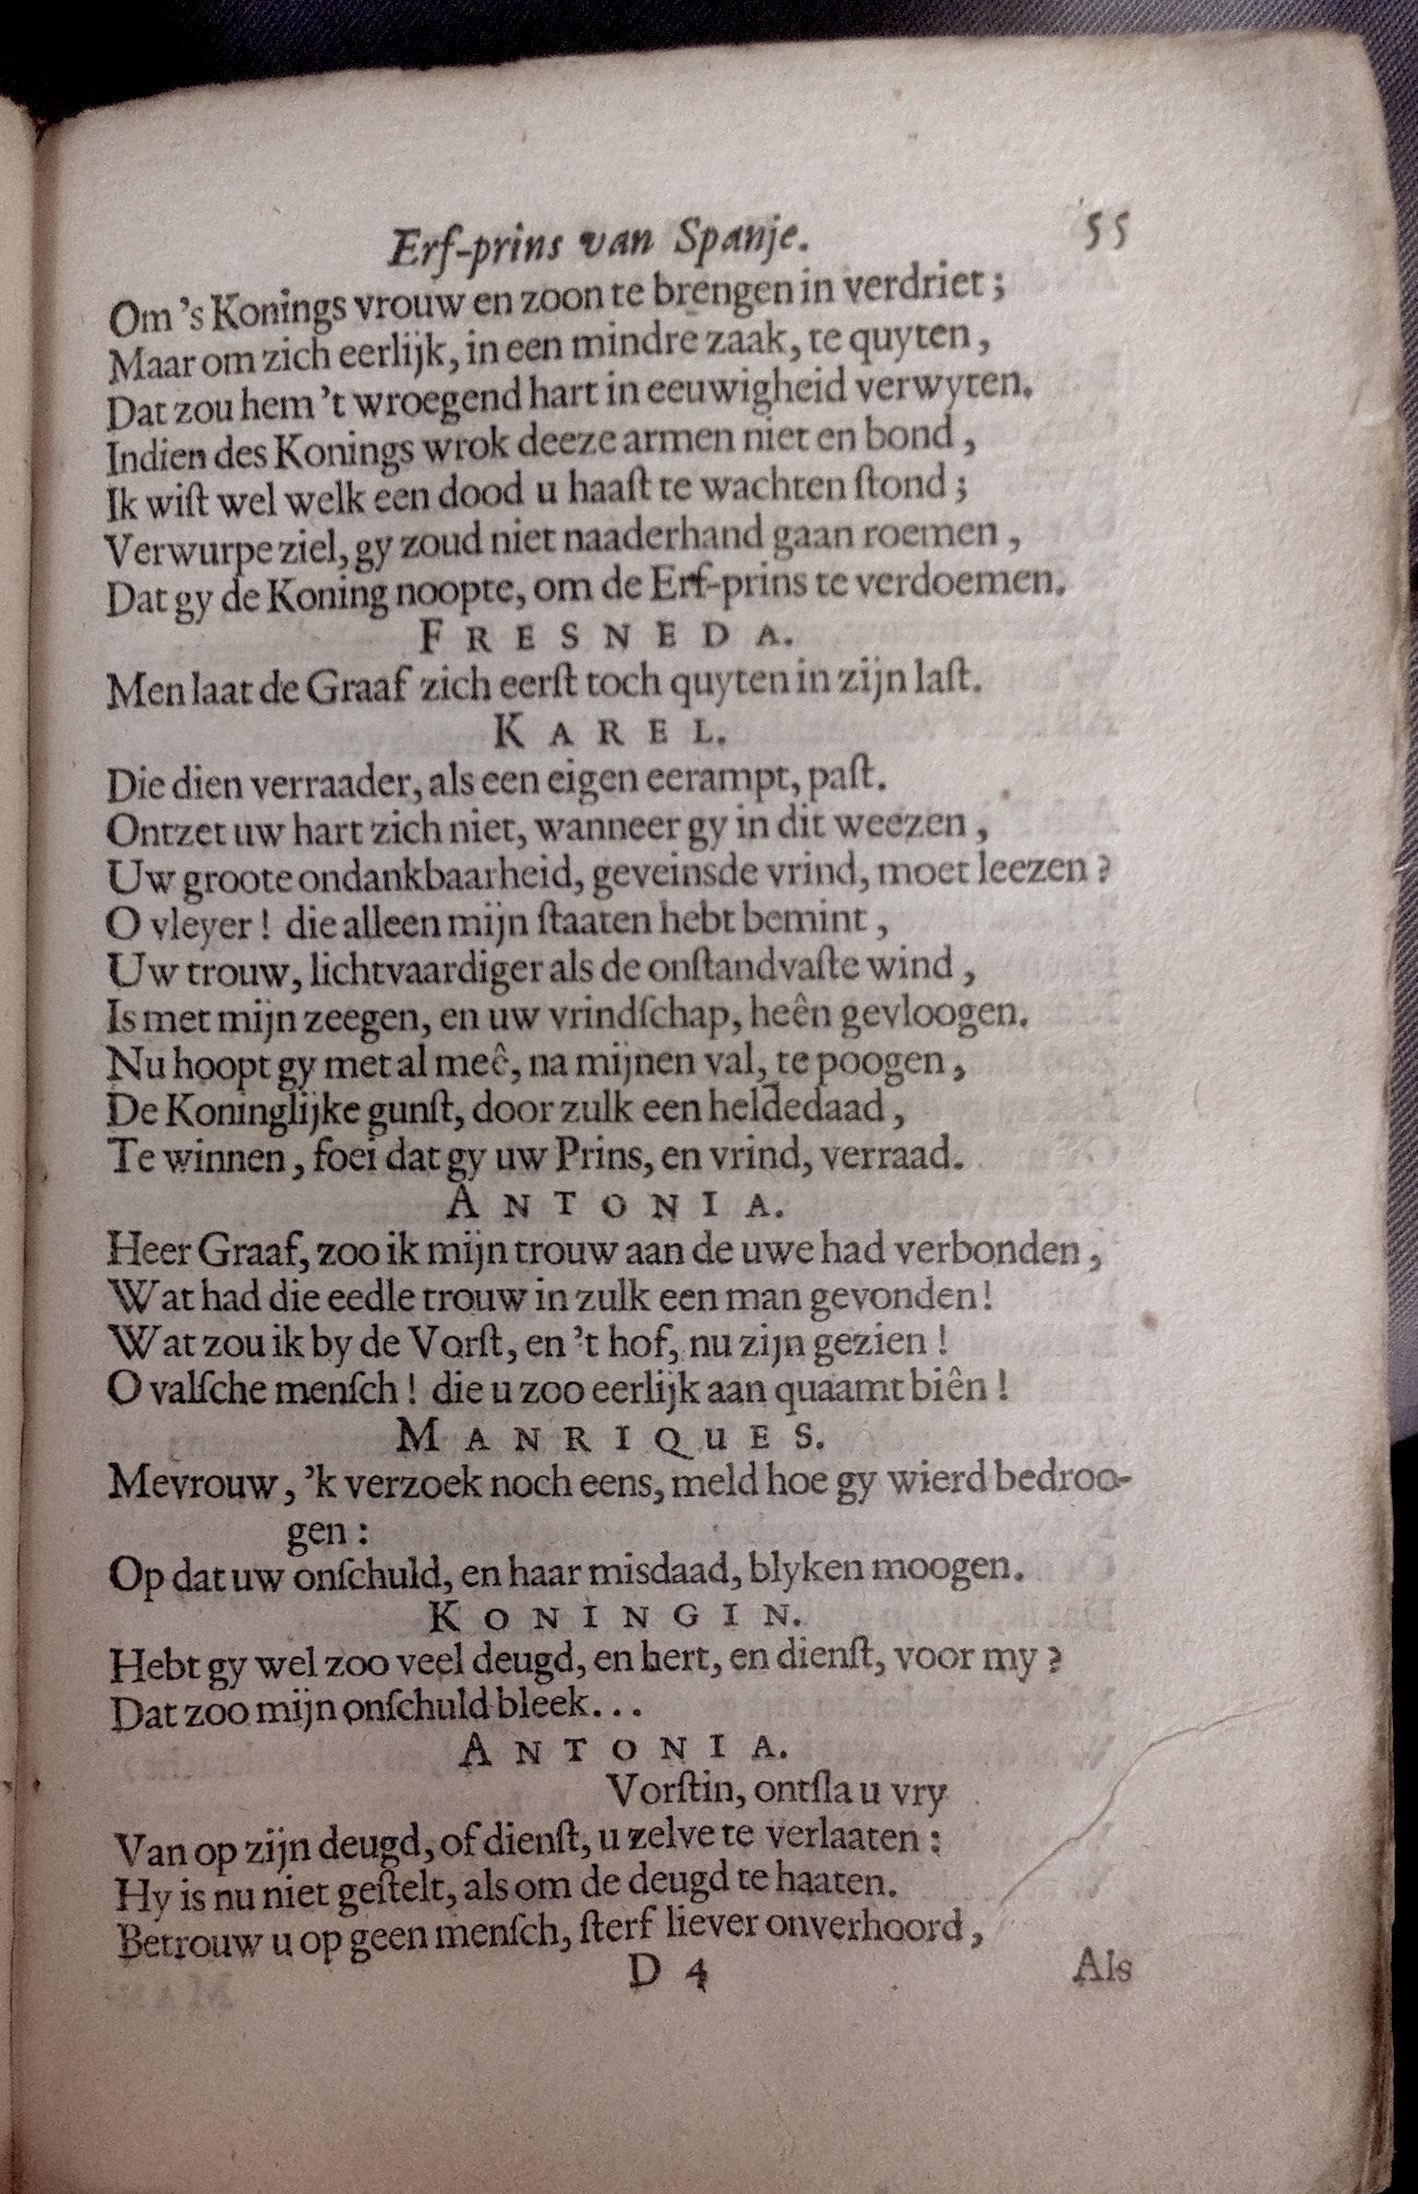 Erf-prins van Spanje. 55
Om 's Konings vrouw en zoon te brengen in verdriet ;
Maar om zich eerlijk, in een mindre zaak, te quyten ,
Dat zou hem 't wroegend hart in eeuwigheid verwyten.
Indien des Konings wrok deeze armen niet en bond ,
Ik wiſt wel welk een dood u haaſt te wachten ſtond ;
Verwurpe ziel, gy zoud niet naaderhand gaan roemen ,
Dat gy de Koning noopte, om de Erf-prins te verdoemen.
FRESNEDA.
Men laat de Graaf zich eerſt toch quyten in zijn laſt.
KAREL.
Die dien verraader, als een eigen eerampt, paſt.
Ontzet uw hart zich niet, wanneer gy in dit weezen ,
Uw groote ondankbaarheid, geveinsde vrind, moet leezen ?
O vleyer ! die alleen mijn ſtaaten hebt bemint ,
Uw trouw, lichtvaardiger als de onſtandvaſte wind ,
Is met mijn zeegen, en uw vrindſchap, heên gevloogen.
Nu hoopt gy met al meê, na mijnen val, te poogen ,
De Koninglijke gunſt, door zulk een heldedaad ,
Te winnen , foei dat gy uw Prins, en vrind, verraad.
ANTONIA.
Heer Graaf, zoo ik mijn trouw aan de uwe had verbonden ,
Wat had die eedle trouw in zulk een man gevonden !
Wat zou ik by de Vorſt, en 't hof, nu zijn gezien !
O valſche menſch ! die u zoo eerlijk aan quaamt biên !
MANRIQuES.
Mevrouw , 'k verzoek noch eens, meld hoe gy wierd bedroo-
gen :
Op dat uw onſchuld, en haar misdaad, blyken moogen.
KONINGIN.
Hebt gy wel zoo veel deugd, en hert, en dienſt, voor my ?
Dat zoo mijn onſchuld bleek...
ANTONIA.
Vorſtin, ontſla u vry
Van op zijn deugd, of dienſt, u zelve te verlaaten :
Hy is nu niet geſtelt, als om de deugd te haaten.
Betrouw u op geen menſch, ſterf liever onverhoord ,
D 4 Als